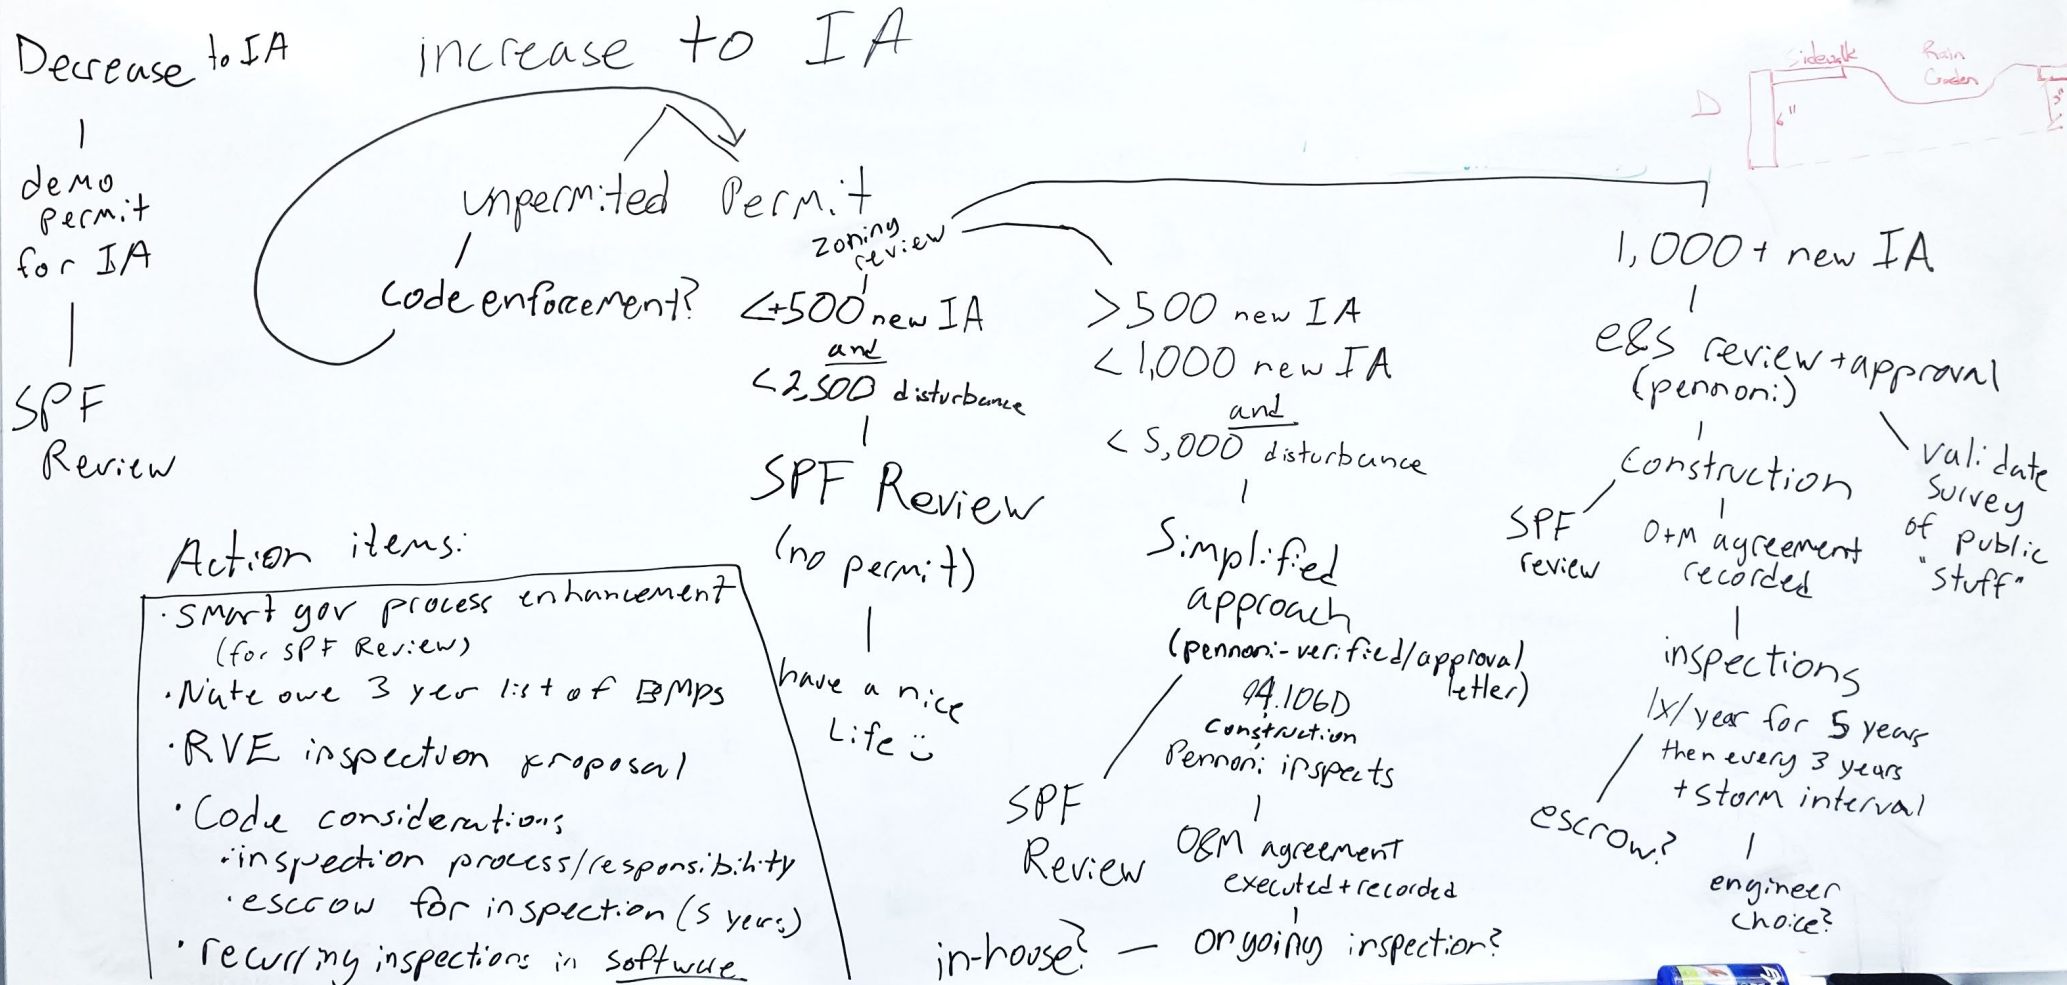 Decrease to IA
demo
permit
for IA
SPF
Review
increase to IA
unpermitted
code enforcement?
Permit
zoning
review
<+500 new IA
and
<2,500 disturbance
SPF Review
(no permit)
have a nice
Life
>500 new IA
<1,000 new IA
and
<5,000 disturbance
Simplified
approach
(pennoni-verified/approval
letter)
94.106D
construction
Pennoni inspects
SPF
Review
O&M agreement
executed+recorded
ongoing inspection?
in-house?
1,000+ new IA
e&s review+approval
(pennoni)
validate
survey
of public
"stuff"
construction
SPF
review
O+M agreement
recorded
inspections
1x/year for 5 years
then every 3 years
+ storm interval
escrow?
engineer
choice?
Action items:
· smart gov process enhancement
(for SPF Review)
· Nate owe 3 year list of BMPs
· RVE inspection proposal
· Code considerations
· inspection process/responsibility
· escrow for inspection (5 years)
· recurring inspections in software
Sidewalk
Rain
Garden
D
6"
3"